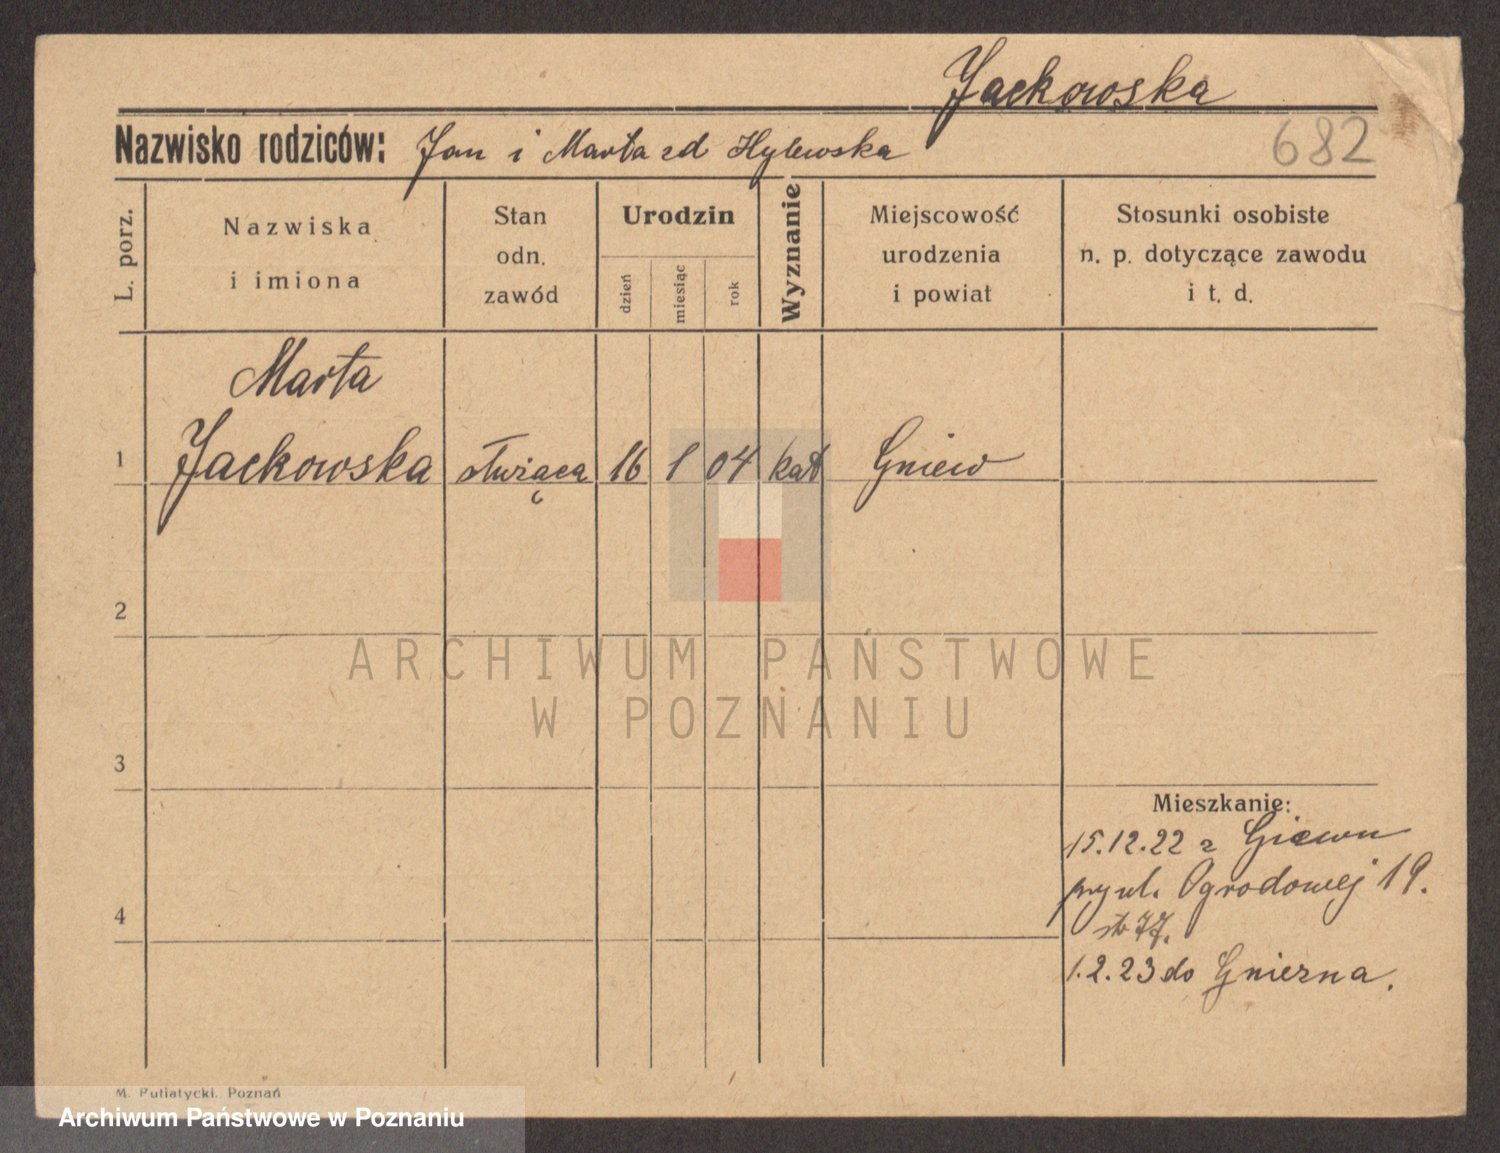 Jackowska
Nazwisko rodziców: Jan i Marta zd Hylewska
682
L. porz.
Nazwiska
i imiona
Stan
odn.
zawód
Urodzin
dzień
miesiąc
rok
Wyznanie
Miejscowość
urodzenia
i powiat
Stosunki osobiste
n. p. dotyczące zawodu
i t. d.
Marta
1 Jackowska służąca 16 1 04 kat Gniew
2
ARCHIWUM PAŃSTWOWE
W POZNANIU
3
Mieszkanie:
15.12.22 z
przy ul. Ogrodowej 19.
4
1.2.23 do Gniezna.
M. Putiatycki. Poznań
Archiwum Państwowe w Poznaniu